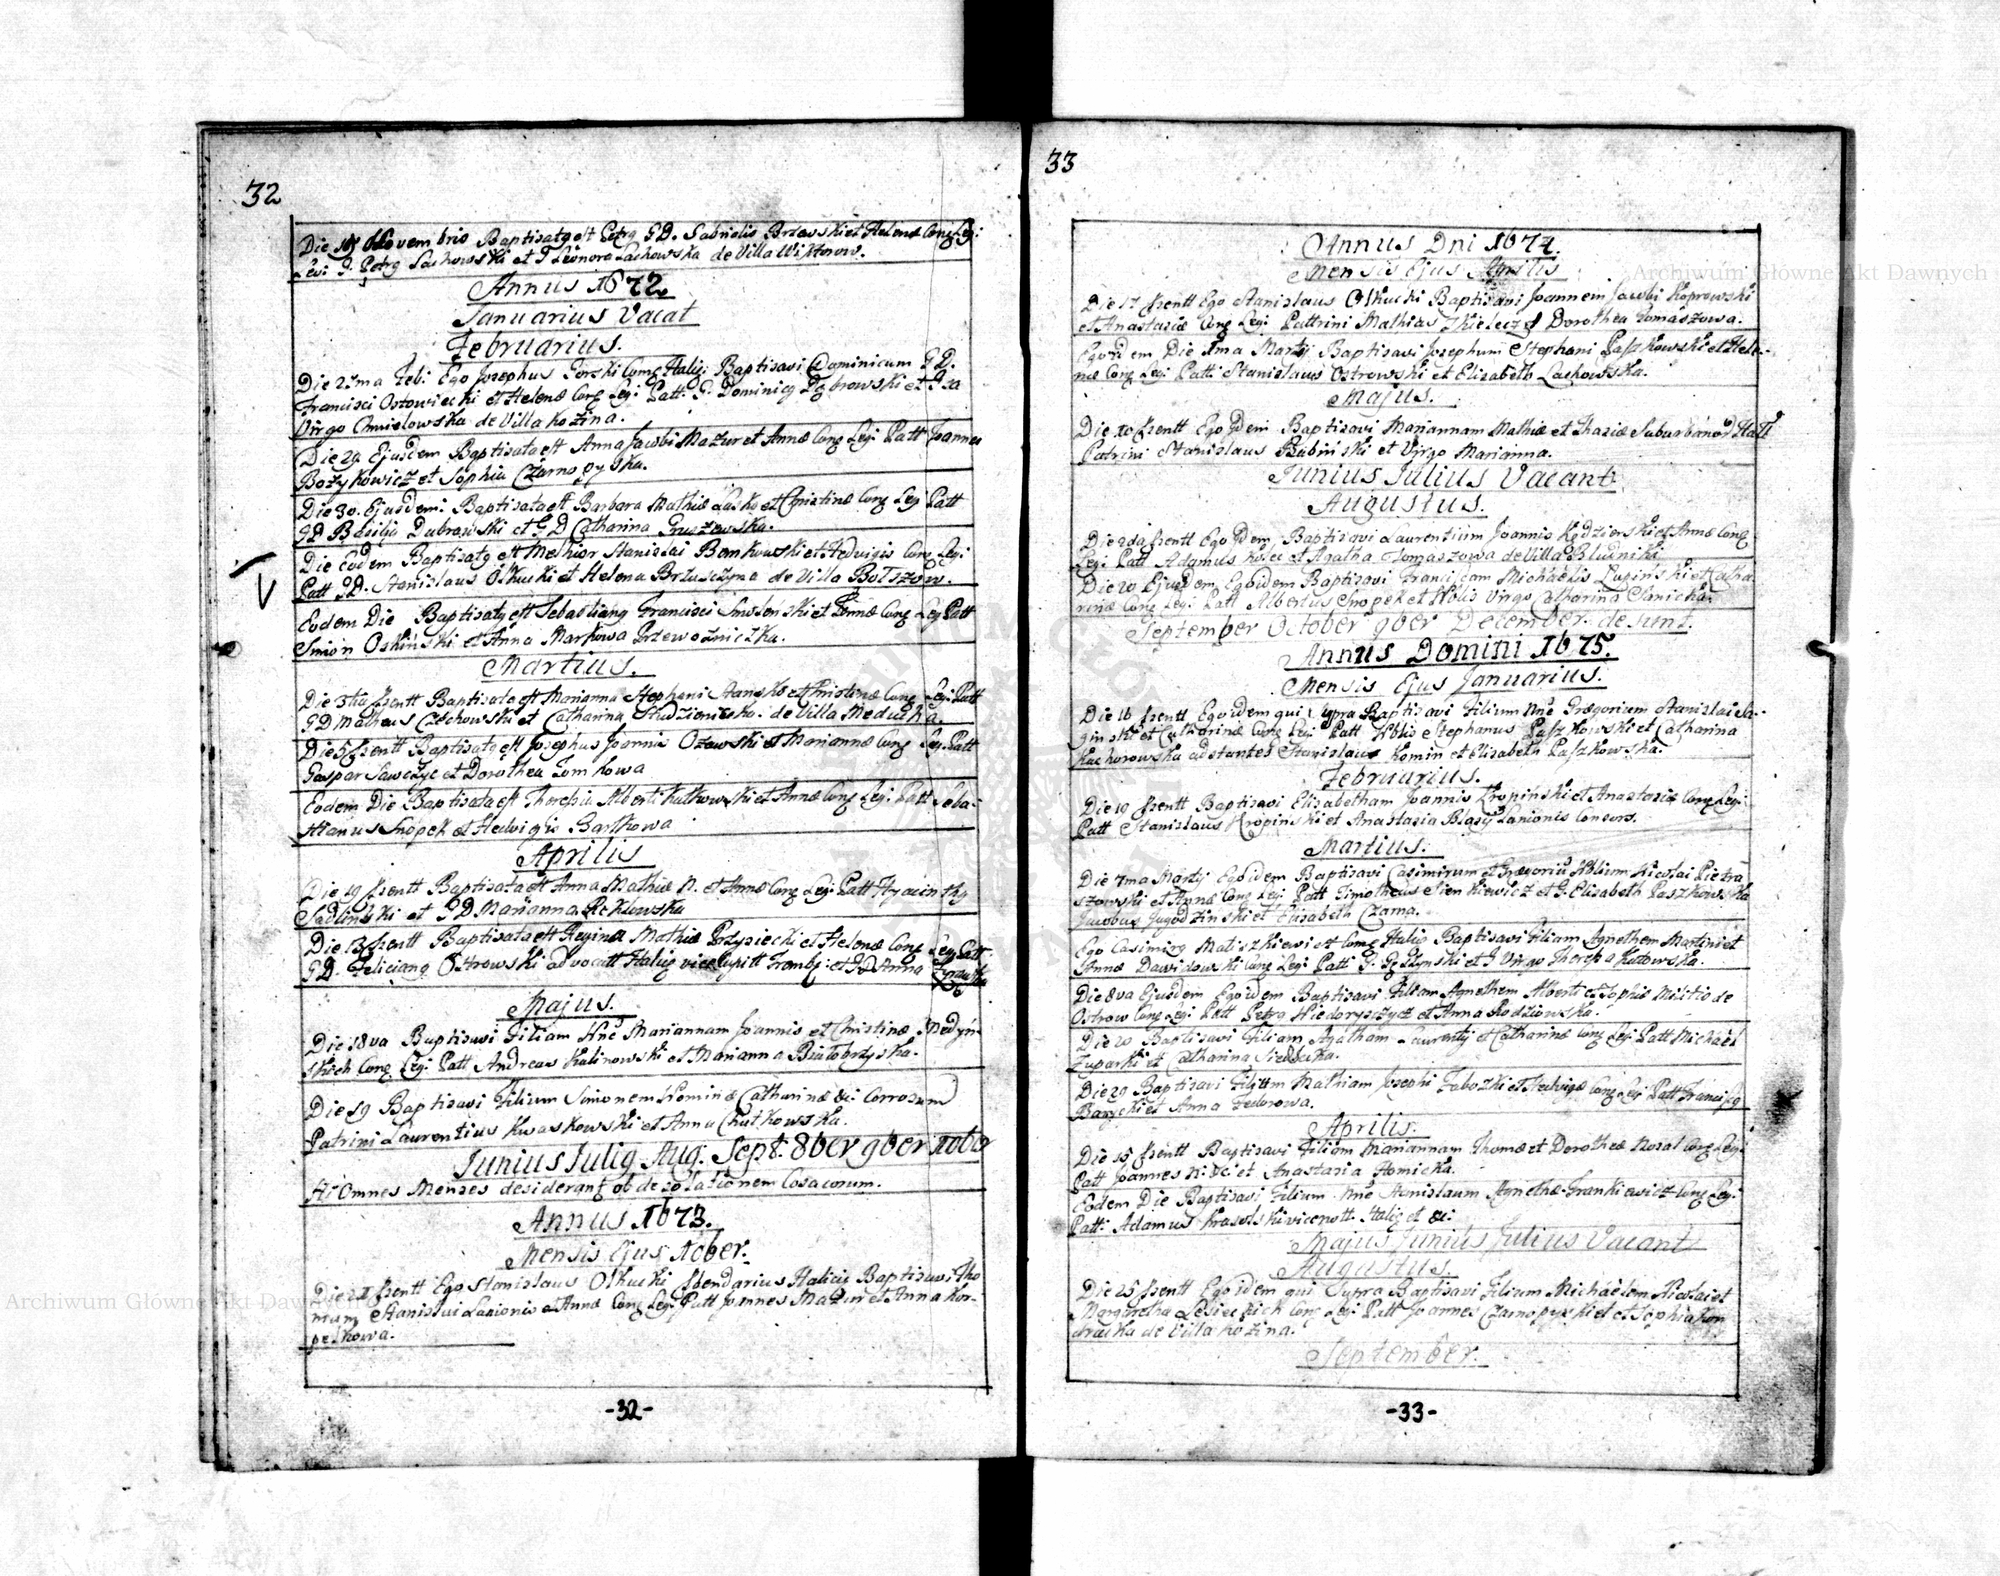 32
Die 15 Novembris Baptisatq est Petrq GD. Gabrielis Brzewski et Helenæ Conq Legi:
Levi G. Petrq Lachowski et G Leonora Lachowska de Villa Wiktorow.
Annus 1672.
Januarius Vacat
Februarius.
Die 25ma Feb: Ego Josephus Gorski Comq Halig: Baptisavi Dominicum GD.
Francisci Ostowiecki et Helenæ Conq Legi: Patt: G. Dominicq Dąbrowski et
Virgo Chmielowska de Villa Kozina.
Die 29 Ejusdem Baptisata est Anna Jacobi Mazur et Annæ Conq Legi Patt Joannes
Bozykowicz et Sophia Czarnopyska.
Die 30. Ejusdem: Baptisata est Barbara Mathiæ Lasko et Christinæ Conq Leg: Patt
GD Basilij Dubrawski et GD Catharina Gruszewska.
Die Eodem Baptisatq est Melhior Stanislai Bemkowski et Hedvigis Conq Legi:
Patt GD. Stanislaus Olkucki et Helena Brzusczyna de Villa Bołszow.
Eodem Die Baptisatq est Sebastianq Francisci Smolenski et Annæ Conq Leg Patt
Simon Oskinski et Anna Markowa Przewozniczka.
Martius.
Die 3tia Psentt Baptisata est Marianna Stephani Stansko et Christinæ Conq Legi: Patt
GD Matheus Czechowski et Catharina Studzienisko. de Villa Meducha.
Die 5 Psentt Baptisatq est Josephus Joannis Ozawski et Mariannæ Conq Legi: Patt
Gaspar Sawczyc et Dorothea Tomkowa
Eodem Die Baptisata est Theresia Alberti Kutkowski et Annæ Conq Legi: Patt Seba-
stianus Snopek et Hedvigis Bartkowa
Aprilis
Die 19 Psentt Baptisata est Anna Mathiæ N. et Annæ Conq Leg: Patt Hyacinthq
Sadlinski et GD Marianna Rektowska
Die 13 Psentt Baptisata est Regina Mathiæ Pozysiecki et Helenæ Conq Leg: Patt
GD. Felicianq Ostrowski advocatt Haliq et GD Anna
Majus.
Die 18va Baptisavi Filiam Nnē Mariannam Joannis et Christinæ Smedyn-
skich Conq Legi: Patt Andreas Kalinowski et Marianna Białobrzyska.
Die 19 Baptisavi Filium Simonem Catharinæ &: Corrosum
Patrini Laurentius Kwaskowski et Anna Chutkowska.
Junius Juliq Aug. Sept. 8ber 9ber 10ber
Hi Omnes Menses desiderant ob desolationem Cosacorum.
Annus 1673.
Mensis Ejus 10ber.
Die 21 Psentt Ego Stanislaus Olkucki Psendarius Halicij Baptisavi Tho
mam Stanislai Lanionis et Annæ Conq Legi: Patt Joannes Mazur et Anna Kor-
petkowa.
-32-
33
Annus Dni 1674.
Mensis Ejus Aprilis
Die 17 Psentt Ego Stanislaus Olkucki Baptisavi Joannem Jacobi Koprowski
et Anastasiæ Conq Legi: Pattrini Mathias Skielecz et Dorothea Tomaszowa.
Egoidem Die 1ma Martij Baptisavi Josephum Stephani Paszkowski et Hele-
næ Conq Legi: Patt: Stanislaus Ostrowski et Elisabeth Lachowska.
Majus.
Die 20 Psentt Egoidem Baptisavi Mariannam Mathiæ et Thasiæ Suburbanor Hali
Patrini Stanislaus Babinski et Virgo Marianna.
Junius Julius Vacant
Augustus.
Die 2da Psentt Egoidem Baptisavi Laurentium Joannis Kędzierski et Annæ Conq
Legi: Patt Adamus Kolec et Agatha Tomaszowa de Villa Bludniki
Die 20 Ejusdem Egoidem Baptisavi Franciscam Michaelis Lupinski et Catha-
rinæ Conq Legi: Patt Albertus Snopek et Nblis Virgo Catharina Sanicka.
September October 9ber December. desunt.
Annus Domini 1675.
Mensis Ejus Januarius.
Die 16 Psentt Egoidem qui supra Baptisavi Filium Nnē Gregorium Stanislai Sa-
ginski et Catharinæ Conq Legi: Patt Nblis Stephanus Paszkowski et Catharina
Kachorowska adstantes Stanislaus Komin et Elisabeth Paszkowska.
Februarius.
Die 19 Psentt Baptisavi Elisabetham Joannis Kropinski et Anastasiæ Conq Legi:
Patt Stanislaus Kropinski et Anastasia Blasij Lanionis Consors.
Martius.
Die 7ma Martij Egoidem Baptisavi Casimirum et Gregoriū Nblium Nicolai Pietra
szowski et Annæ Conq Legi: Patt Timotheus Sienkiewicz et G. Elisabeth Paszkowska
Jacobus Jagodzinski et Elisabeth Czarna.
Ego Casimirq Matiszkiewi ett Comq Haliq Baptisavi Filiam Agnethem Martini et
Annæ Dawidowski Conq Legi: Patt: et G Virgo Theresia Kutowska.
Die 8va Ejusdem Egoidem Baptisavi Filiam Agnethem Alberti et Sophiæ Militio de
Ostrow Conq Legi: Patt Petrq Niedoryszczycz et Anna Rodziowska.
Die 20 Baptisavi Filiam Agatham Laurentij et Catharinæ Conq Legi: Patt Michael
Zuparki et Catharina Siedlecka.
Die 29 Baptisavi Filium Mathiam Josephi Fabozki et Hedvigæ Conq Legi Patt Franciscq
Barycki et Anna Fedorowa.
Aprilis.
Die 15 Psentt Baptisavi Filiam Mariannam Thomæ et Dorotheæ Nosal Conq Legi:
Patt Joannes N: &c: et Anastasia Homicka.
Eodem Die Baptisavi Filium Nnē Stanislaum Agnethæ Frankiewicz Conq Legi:
Patt: Adamus Krasolski vicenott. Haliq et &:
Majus Junius Julius Vacant
Augustus.
Die 25 Psentt Egoidem qui Supra Baptisavi Filium Michaelem Nicolai et
Margaretha Lesieckich Conq Legi: Patt Joannes Czarnopyski et et Sophia Kon
dracka de Villa Kozina.
September.
-33-
Archiwum Główne Akt Dawnych
Archiwum Główne Akt Dawnych